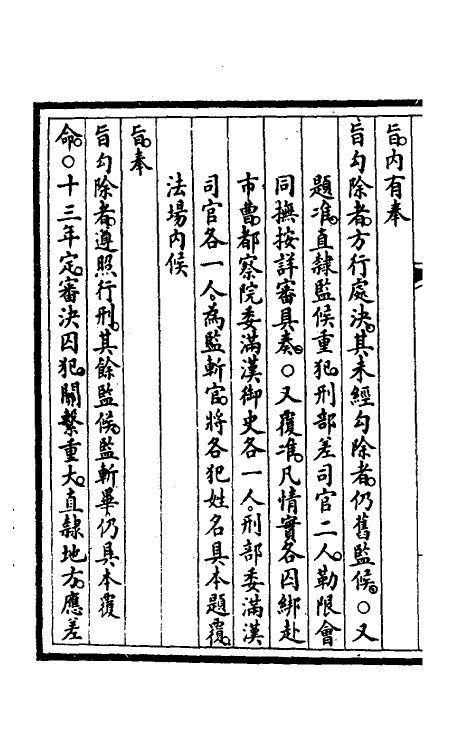 旨。內有奉
旨勾除者。方行處決。其未經勾除者。仍舊監候。○又
題准。直隸監候重犯。刑部差司官二人。勒限會
同撫按詳審具奏。○又覆准。凡情實各囚綁赴
市曹。都察院委滿漢御史各一人。刑部委滿漢
司官各一人。為監斬官。將各犯姓名具本題覆。
法場內候
旨。奉
旨勾除者。遵照行刑。其餘監候。監斬畢仍具本覆
命。○十三年定。審決囚犯。關繫重大。直隸地方。應差